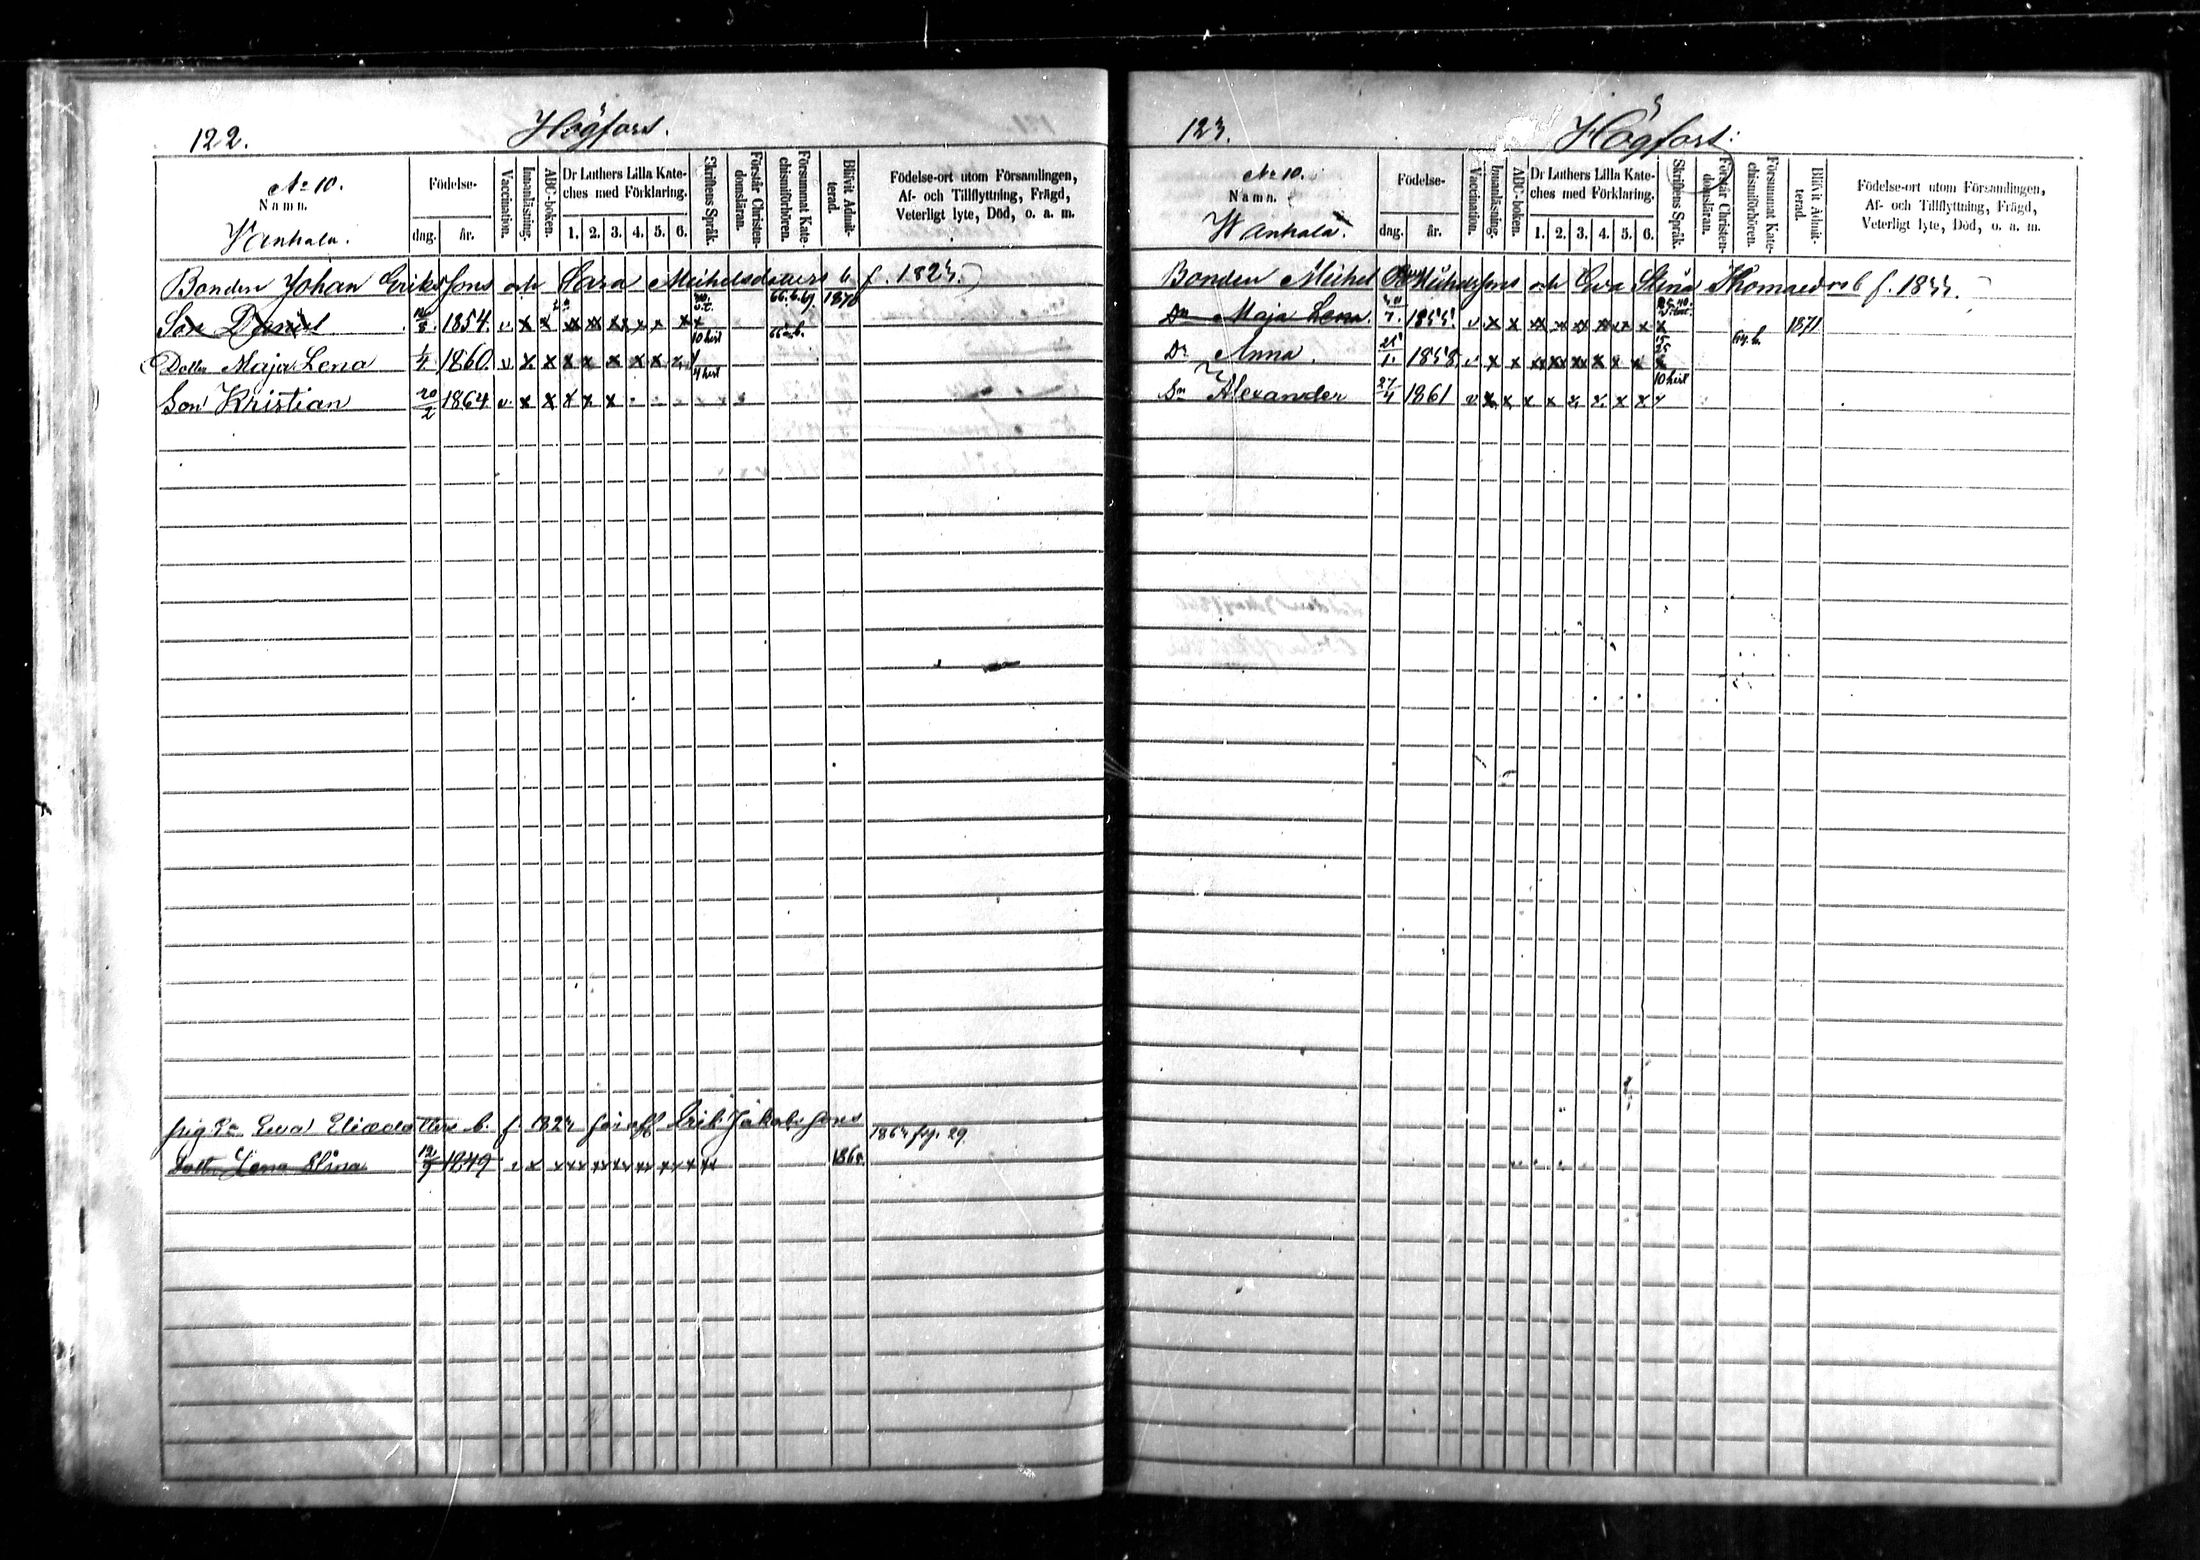 122.
Högfors.
No 10.
Namn.
Wanhala.
Födelse-
dag.
år.
Vaccination.
Innanläsning.
ABC-boken.
Dr Luthers Lilla Kate-
ches med Förklaring.
1. 2. 3. 4. 5. 6.
Skriftens Språk.
Förstår Christen-
domsläran.
Försummat Kate-
chismiförhören.
Blifvit Admit-
terad.
Födelse-ort utom Församlingen,
Af- och Tillflyttning, Frägd,
Veterligt lyte, Död, o. a. m.
Bonden Johan Eriks sons och Sara Michelsdotters b. f. 1823.
Son Daniel 1854. v. x x xx xx xx x x x x 66. b. 67 1870
Dotter Maja Lena 1/4 1860. v. x x x x x x x 10 hist
Son Kristian 20/2 1864 v. x x x x x 4 hist
Eva Eliædotters b. f. 1823 Erik Jakobs sons
1863 pg. 29
Dott. Lena Stina 12/9 1849 x x xx xx xx xx xx xx 1865.
123.
Högfors.
No 10.
Namn.
Wanhala.
Födelse-
dag.
år.
Vaccination.
Innanläsning.
ABC-boken.
Dr Luthers Lilla Kate-
ches med Förklaring.
1. 2. 3. 4. 5. 6.
Skriftens Språk.
Förstår Christen-
domsläran.
Försummat Kate-
chismiförhören.
Blifvit Admit-
terad.
Födelse-ort utom Församlingen,
Af- och Tillflyttning, Frägd,
Veterligt lyte, Död, o. a. m.
Bonden Michel Michelssons och Eva Stina Thomædors b f. 1833.
Dr Maja Lena. 30/7. 1855. v x x xx xx xx xx x x x 1871
Dr Anna. 25/1. 1858. v. x x xx xx xx x x x x 64. b.
Sn Alexander 27/4 1861 v x x x x x x x x x 10 hist